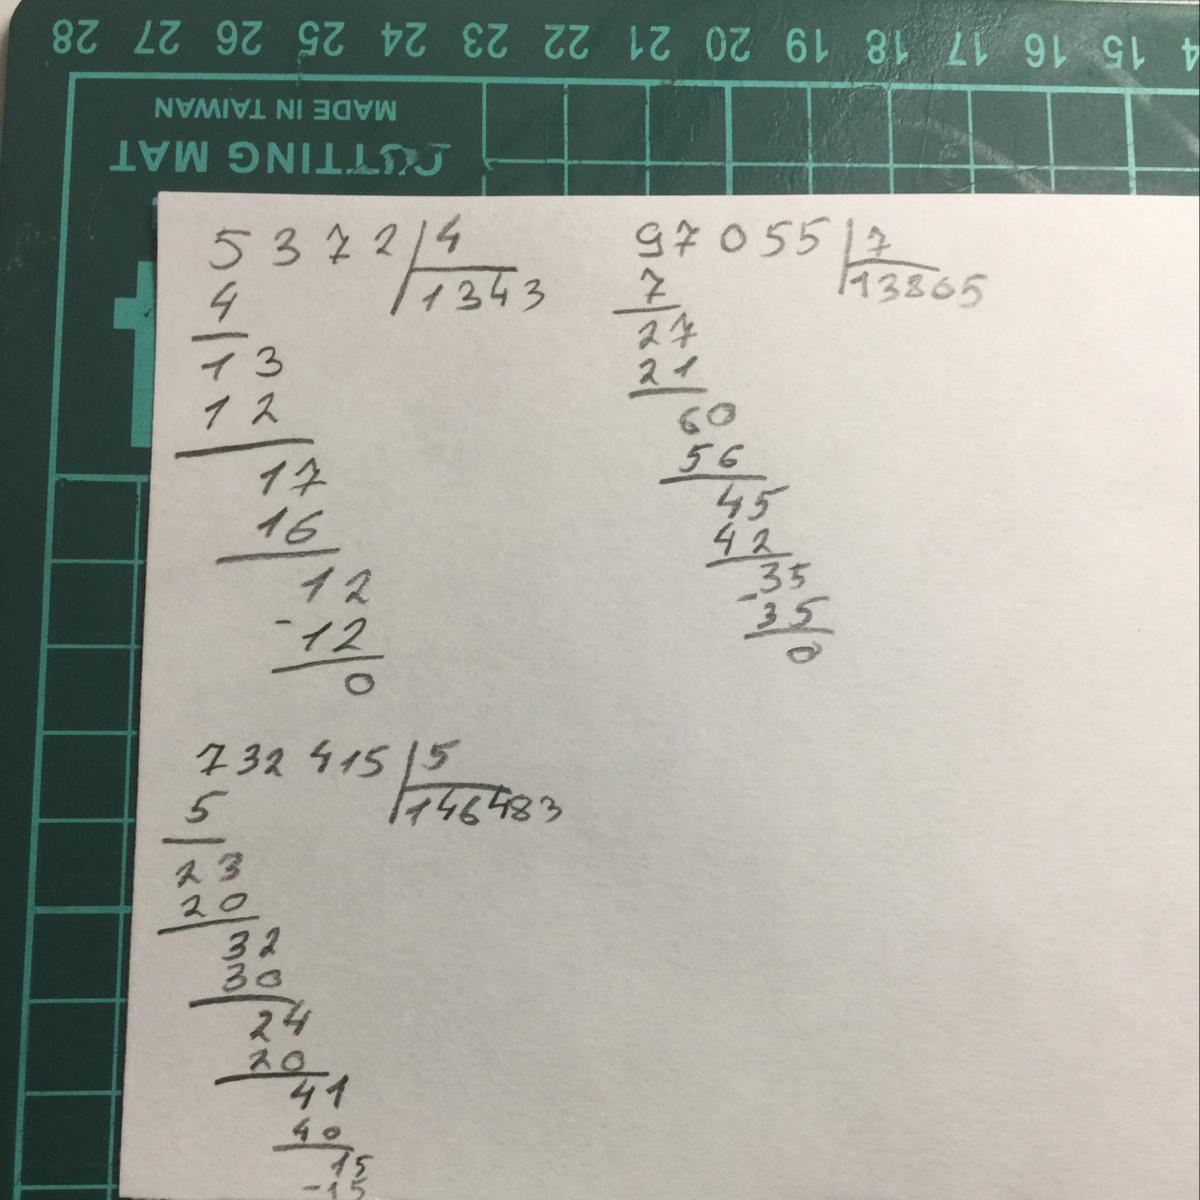 28 27 26 25 24 23 22 21 20 19 18 17 16 15
MADE IN TAIWAN
CUTTING MAT
5372 4
4 1343
13
12
17
16
12
-12
0
97055 7
7 13865
27
21
60
56
45
42
35
-35
0
732415 5
5 146483
23
20
32
30
24
20
41
40
15
-15